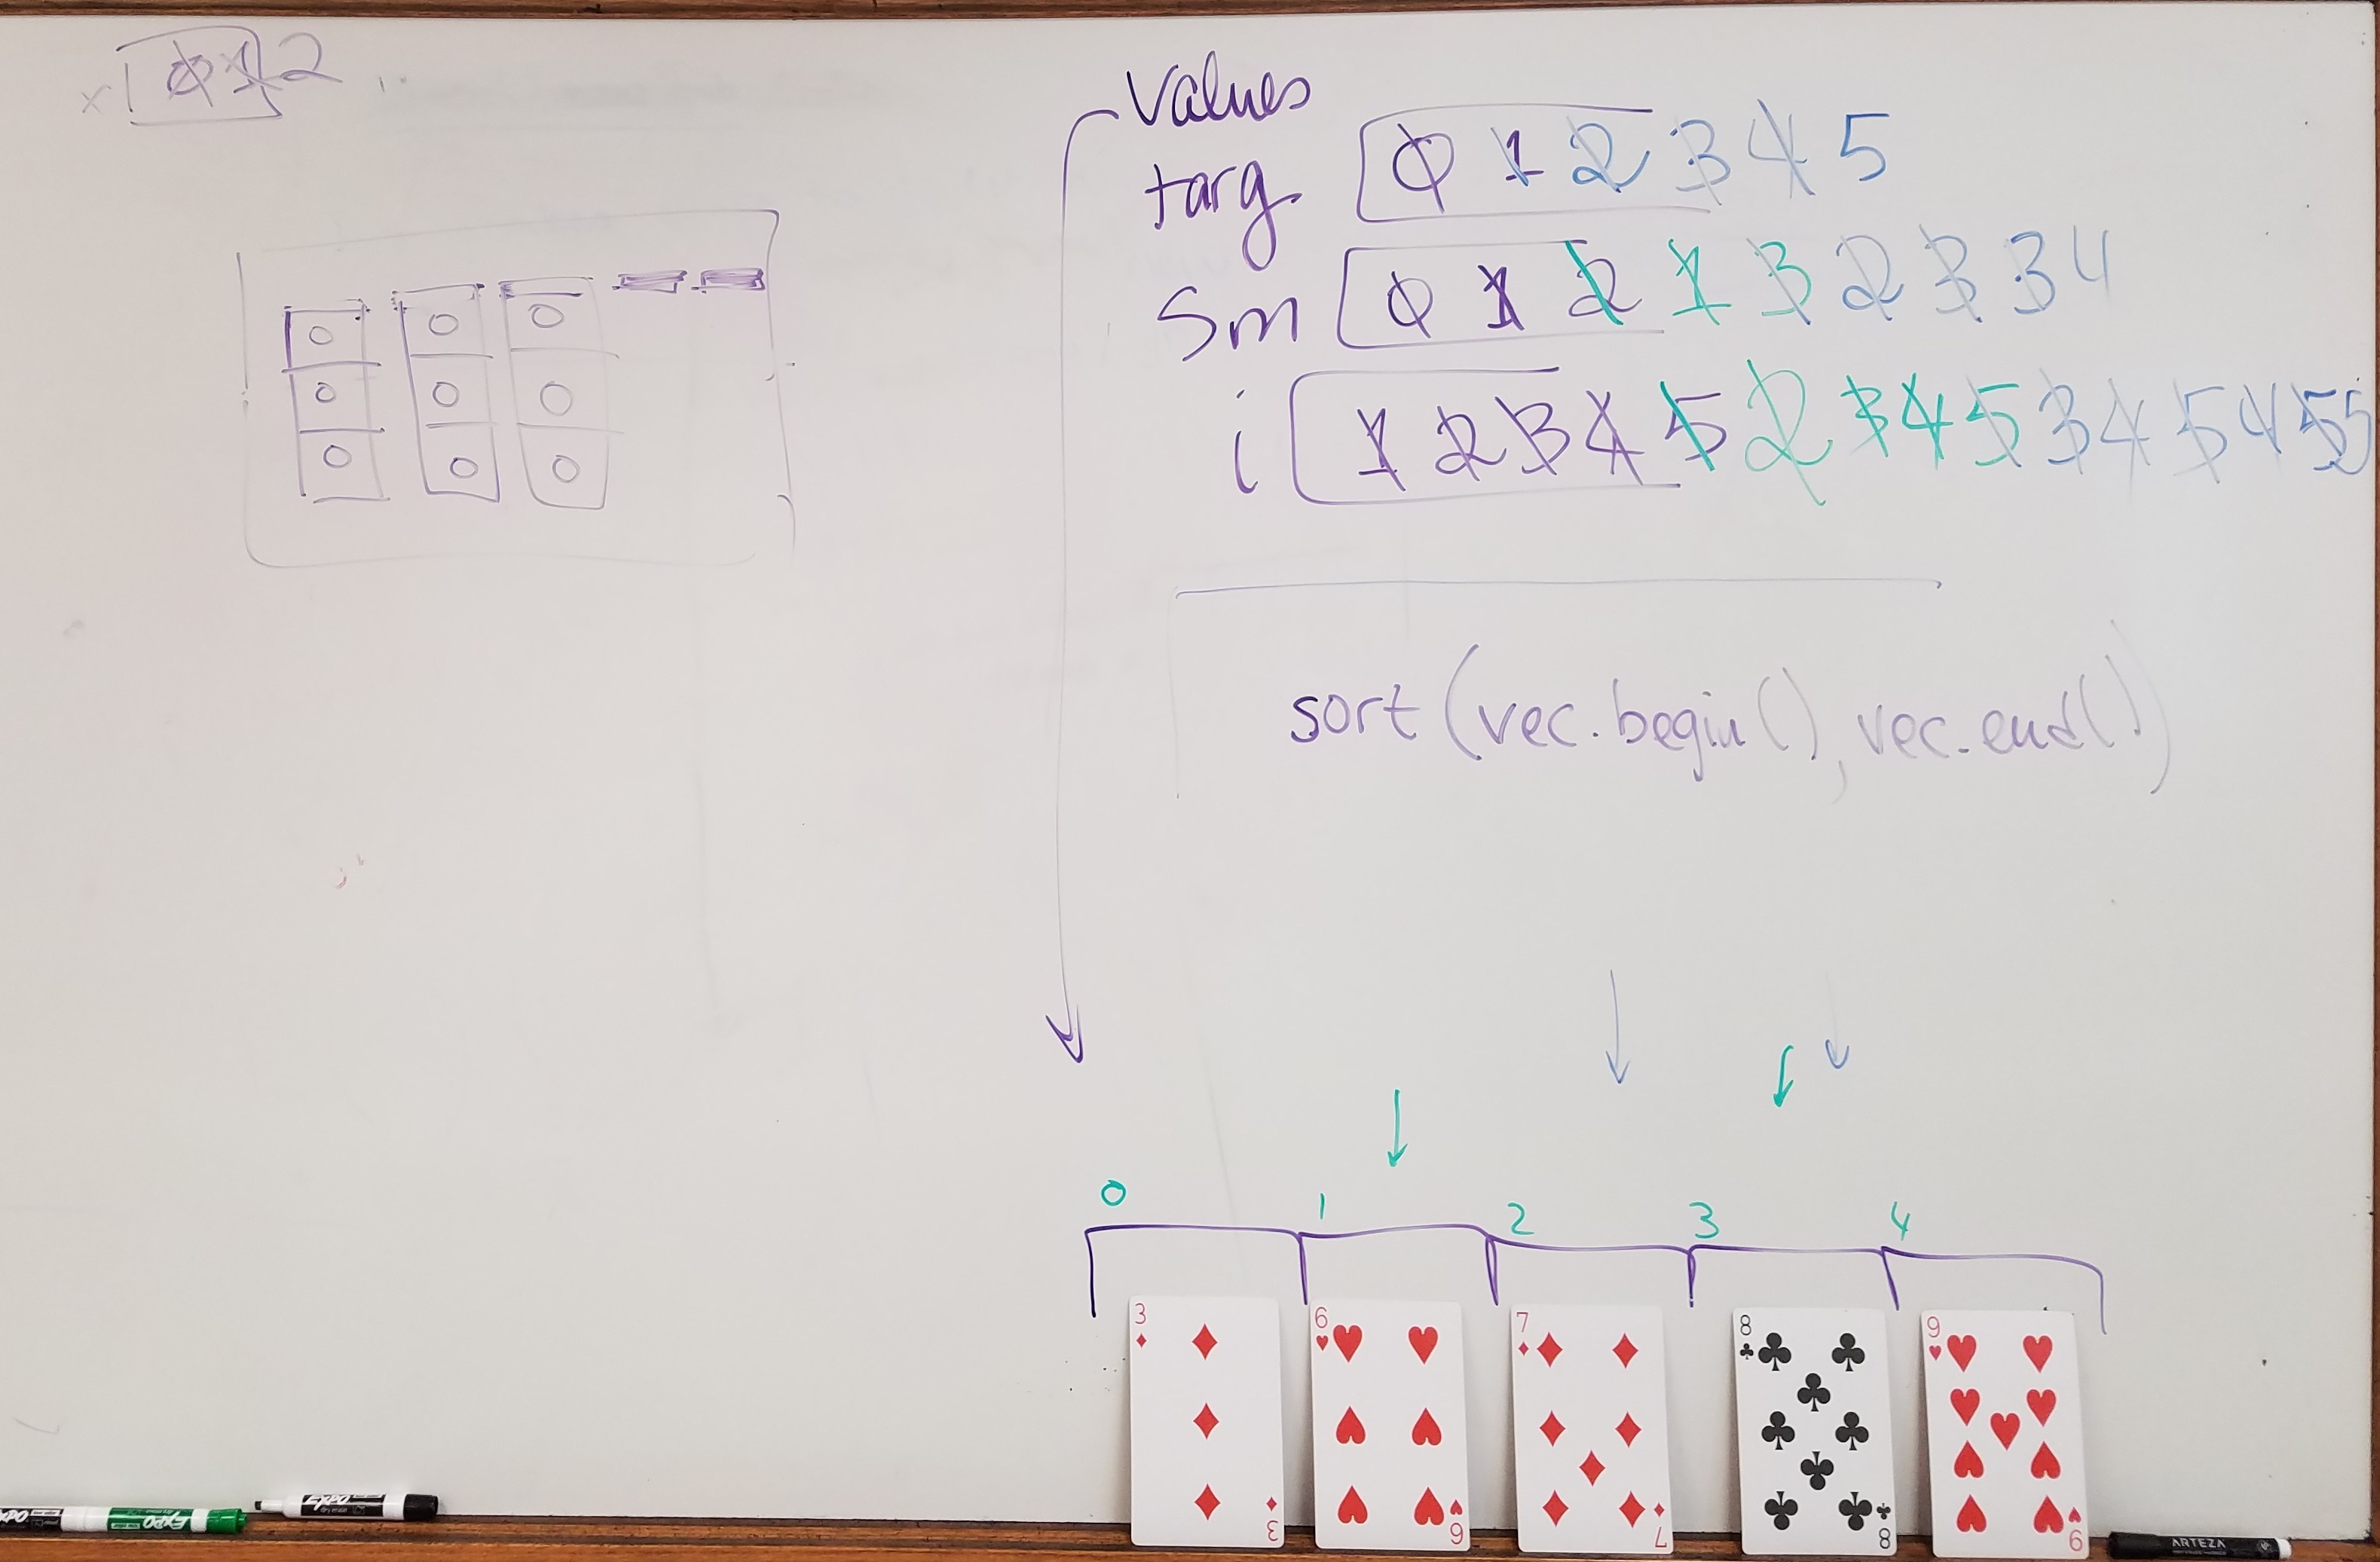 x 0 1 2
values
targ 0 1 2 3 4 5
Sm 0 1 2 1 3 2 3 3 4
i 1 2 3 4 5 2 3 4 5 3 4 5 4 5 5
sort(vec.begin(), vec.end())
0 1 2 3 4
3 6 7 8 9
3 6 7 8 9
EXPO
EXPO
ARTEZA